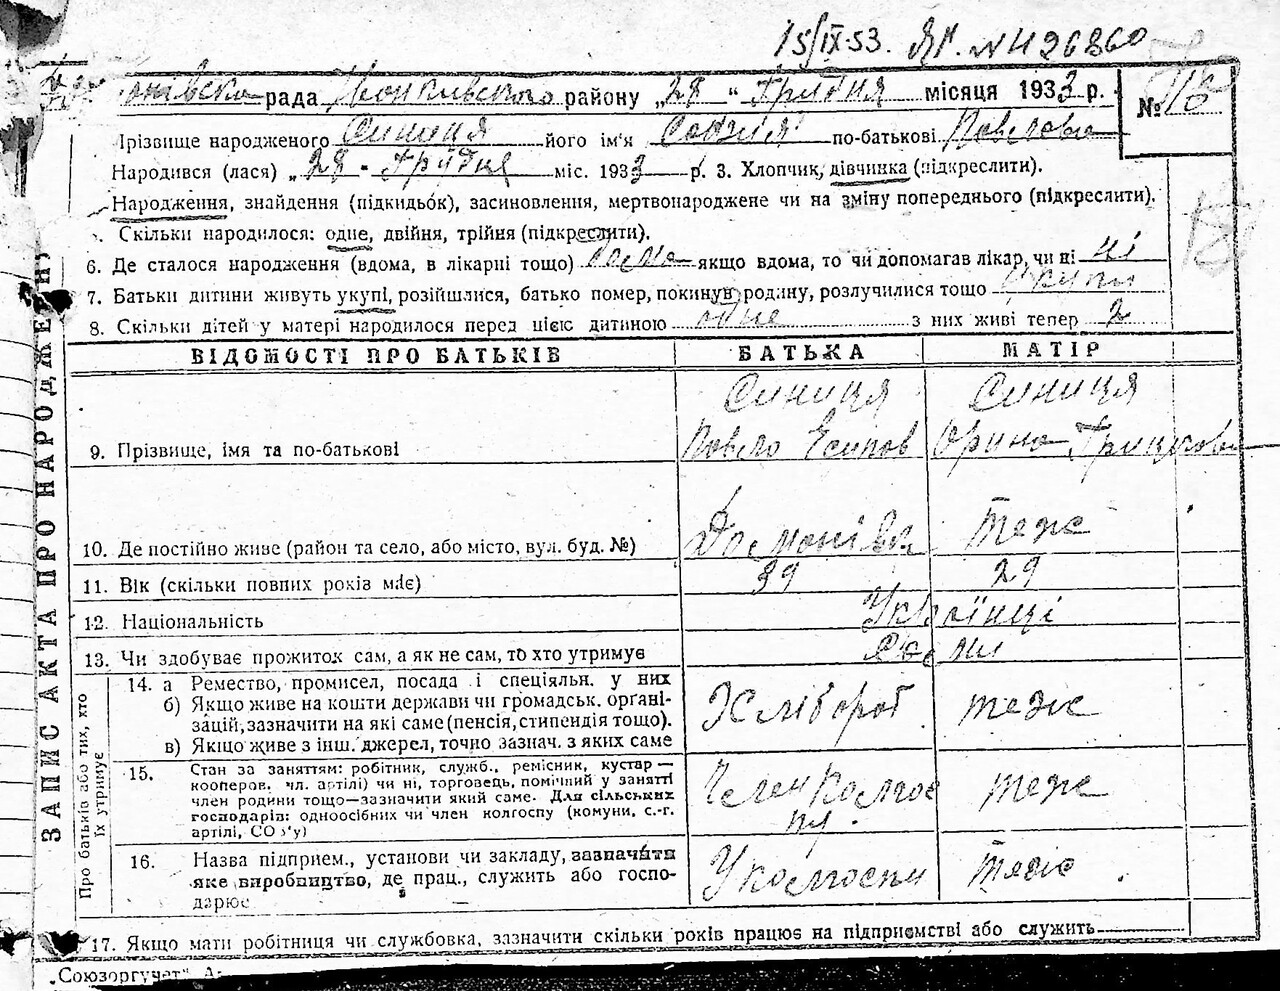 15/IX-53. ЯГ. № 426860
рада району „28 “ Грудня місяця 1933 р.
№
Прізвище народженого Синиця його ім'я Софія по-батькові Павлова
Народився (лася) „28 " Грудня міс. 1933 р. 3. Хлопчик, дівчинка (підкреслити).
Народження, знайдення (підкидьок), засиновлення, мертвонароджене чи на зміну попереднього (підкреслити).
Скільки народилося: одне, двійня, трійня (підкреслити).
6. Де сталося народження (вдома, в лікарні тощо) якщо вдома, то чи допомагав лікар, чи ні ні
7. Батьки дитини живуть укупі, розійшлися, батько помер, покинув родину, розлучилися тощо укупи
8. Скільки дітей у матері народилося перед цією дитиною одне з них живі тепер 2
ЗАПИС АКТА ПРО НАРОДЖЕН
ВІДОМОСТІ ПРО БАТЬКІВ БАТЬКА МАТІР
Синиця Синиця
9. Прізвище, імя та по-батькові Павло Есипов Орина Грицкова
10. Де постійно живе (район та село, або місто, вул. буд. №) теже
11. Вік (скільки повних років має) 39 29
12. Національність Українці
13. Чи здобуває прожиток сам, а як не сам, то хто утримує
Про батьків або тих, хто їх утримує
14. а Ремество, промисел, посада і спеціяльн. у них
б) Якщо живе на кошти держави чи громадськ. органі-
зацій, зазначити на які саме (пенсія, стипендія тощо).
в) Якщо живе з інш. джерел, точно зазнач. з яких саме
Хлібороб теже
15. Стан за заняттям: робітник, служб., ремісник, кустар —
кооперов. чл. артілі) чи ні, торговець, помічний у занятті
член родини тощо—зазначити який саме. Для сільських
господарів: одноосібних чи член колгоспу (комуни, с.-г.
артілі, СО з'у)
Член Колгос
пу. теже
16. Назва підприєм., установи чи закладу, зазначити
яке виробництво, де прац., служить або госпо-
дарює
У колгоспи теже
17. Якщо мати робітниця чи службовка, зазначити скільки років працює на підприємстві або служить
„Союзоргучет"